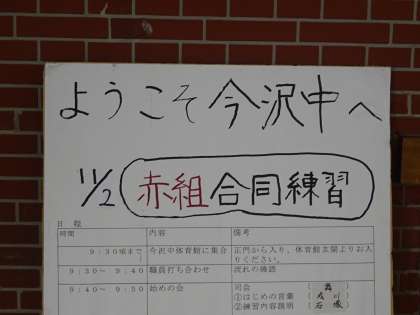 ようこそ今沢中へ
11/2 赤組合同練習
日 程
時間 内容 備考
9:30頃まで 今沢中体育館に集合 正門から入り、体育館玄関よりお入りください。
9:30~ 9:40 職員打ち合わせ 流れの確認
9:40~ 9:50 始めの会 司会 (
①はじめの言葉 (
②練習内容説明 (